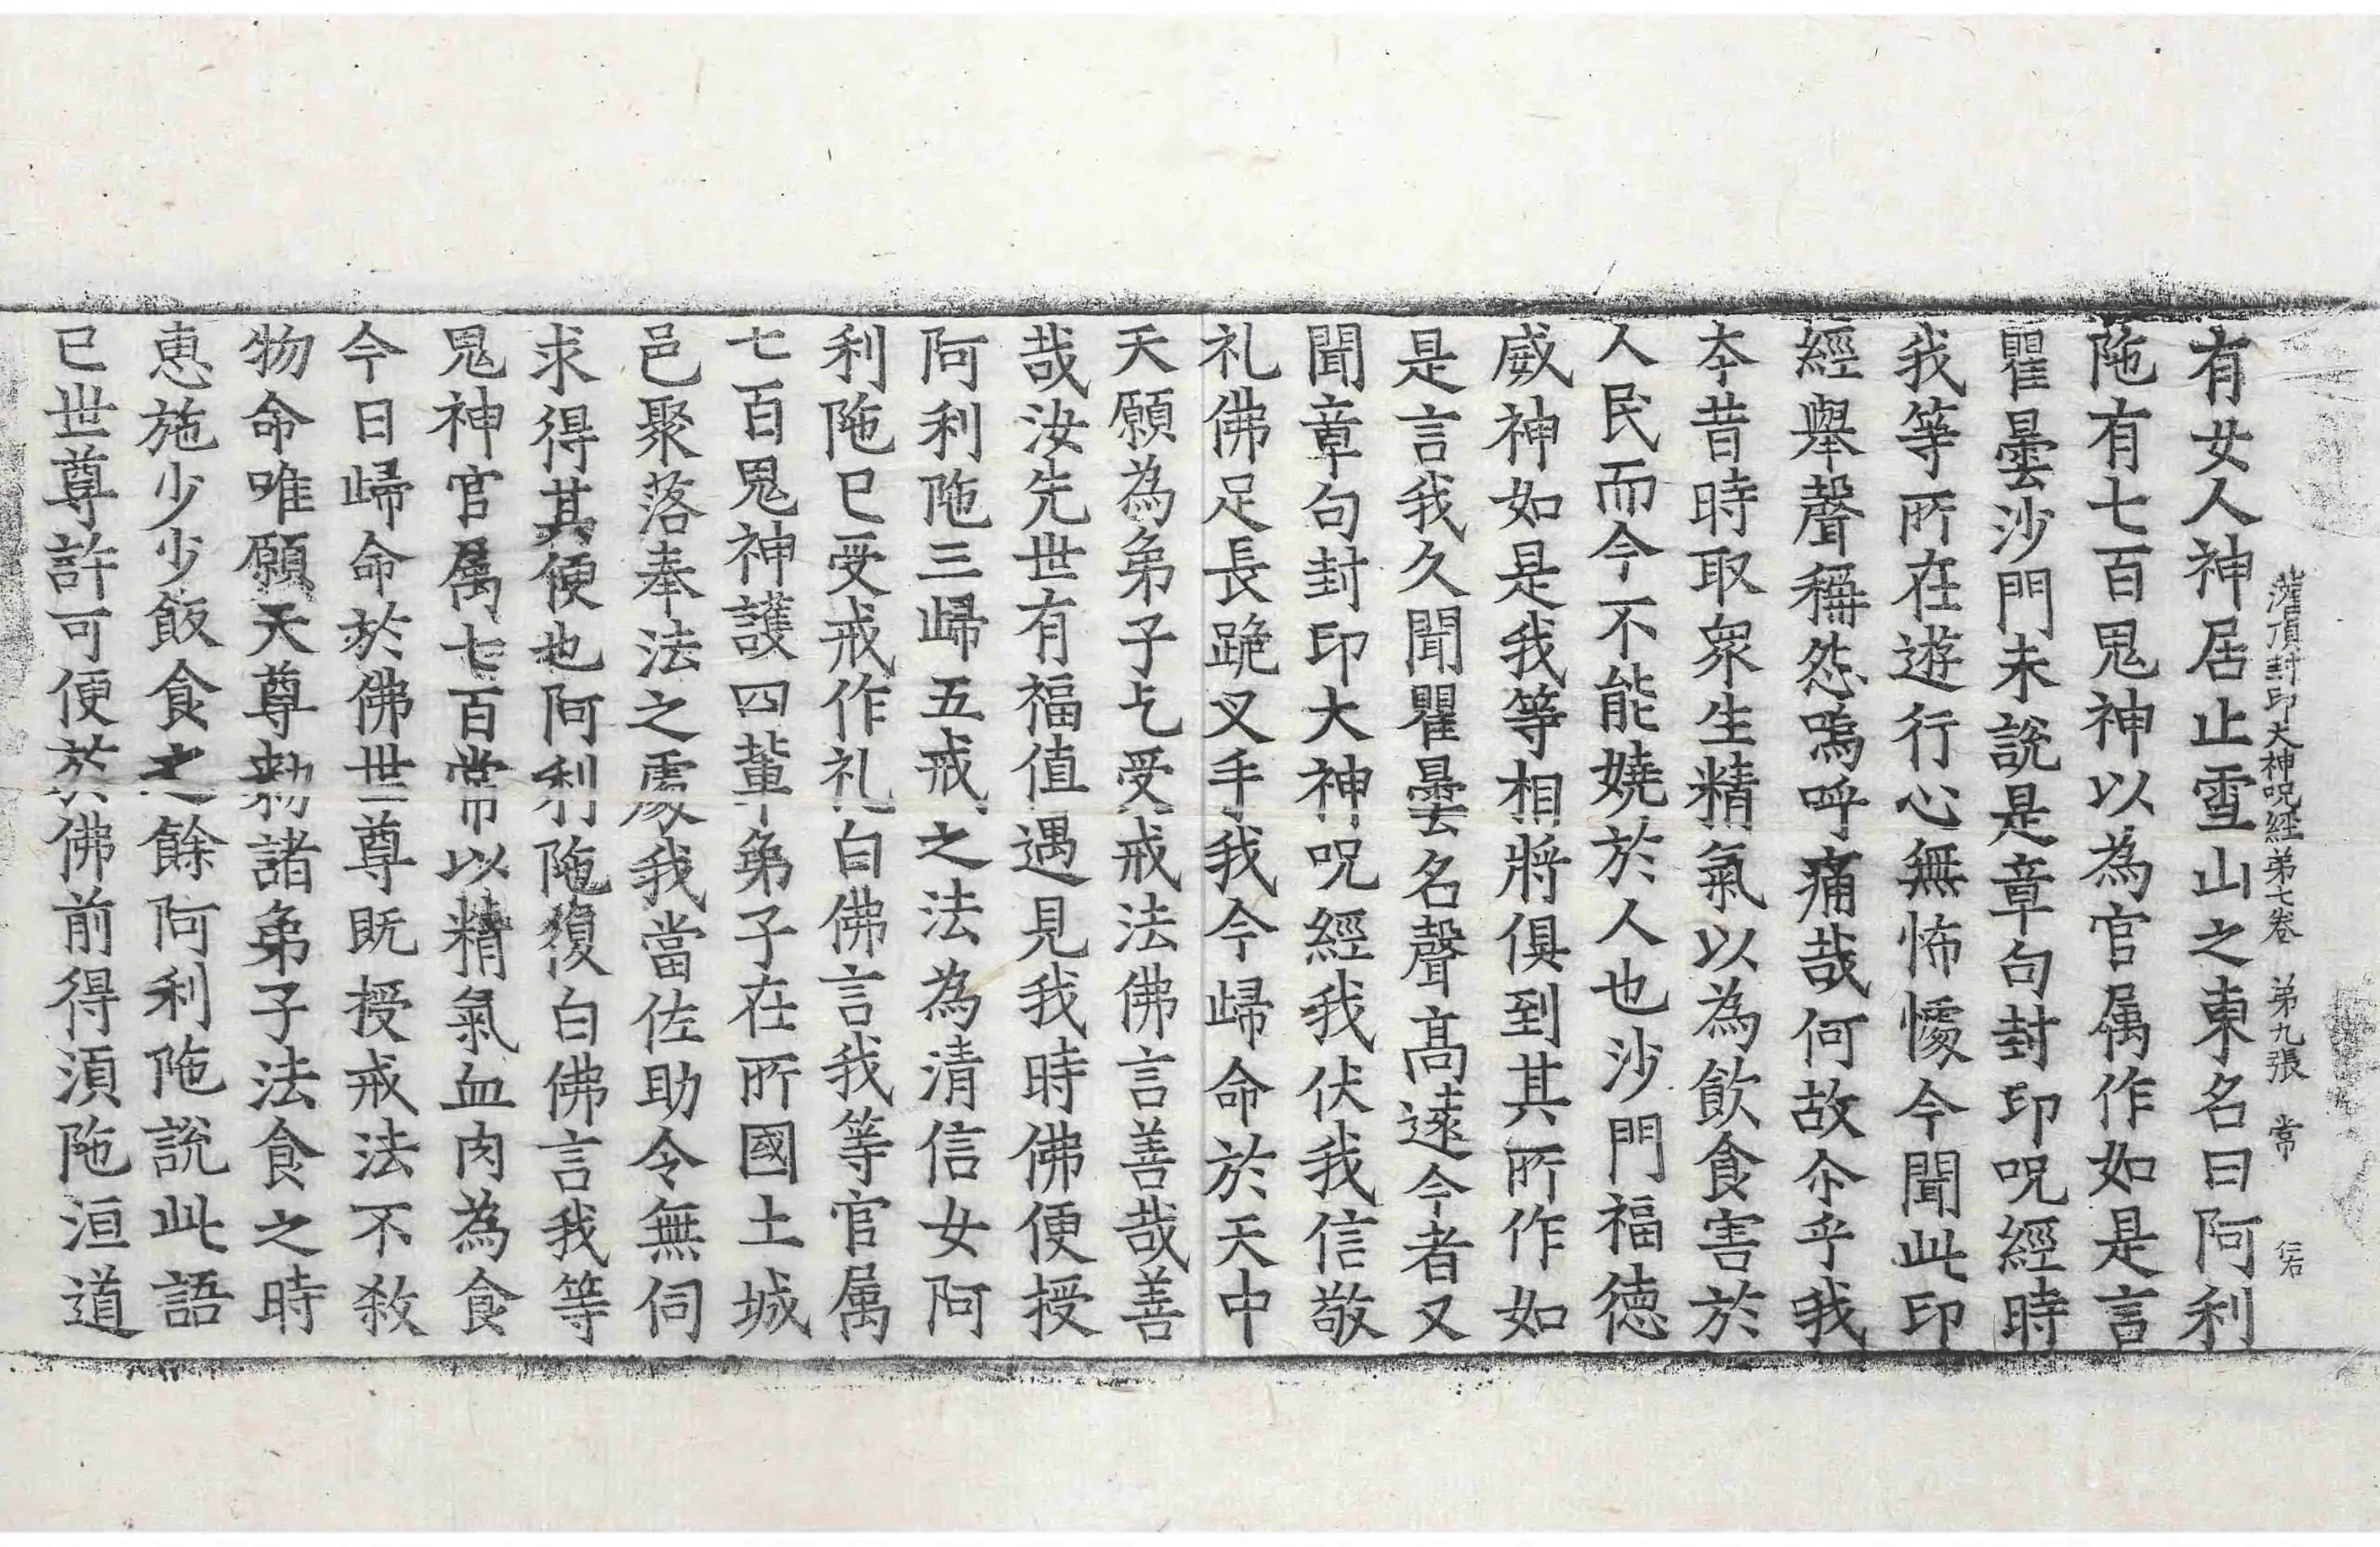 灌頂封印大神呪経第七卷 第九張 常 𠆾石
有女人神居止雪山之東名曰阿利
陁有七百鬼神以為官属作如是言
瞿曇沙門未說是章句封印呪經時
我等所在遊行心無怖懅今聞此印
經舉聲稱怨嗚呼痛哉何故尒乎我
夲昔時取衆生精氣以為飲食害於
人民而今不能嬈於人也沙門福德
威神如是我等相將俱到其所作如
是言我久聞瞿曇名聲髙遠今者又
聞章句封印大神呪經我伏我信敬
礼佛足長跪叉手我今歸命於天中
天願為弟子乞受戒法佛言善哉善
哉汝先世有福值遇見我時佛便授
阿利陁三歸五戒之法為清信女阿
利陁已受戒作礼白佛言我等官属
七百鬼神護四軰弟子在所國土城
邑聚落奉法之處我當佐助令無伺
求得其便也阿利陁復白佛言我等
鬼神官属七百常以精氣血肉為食
今日歸命於佛世尊既授戒法不敎
物命唯願天尊勑諸弟子法食之時
惠施少少飯食之餘阿利陁說此語
已世尊許可便於佛前得湏陁洹道